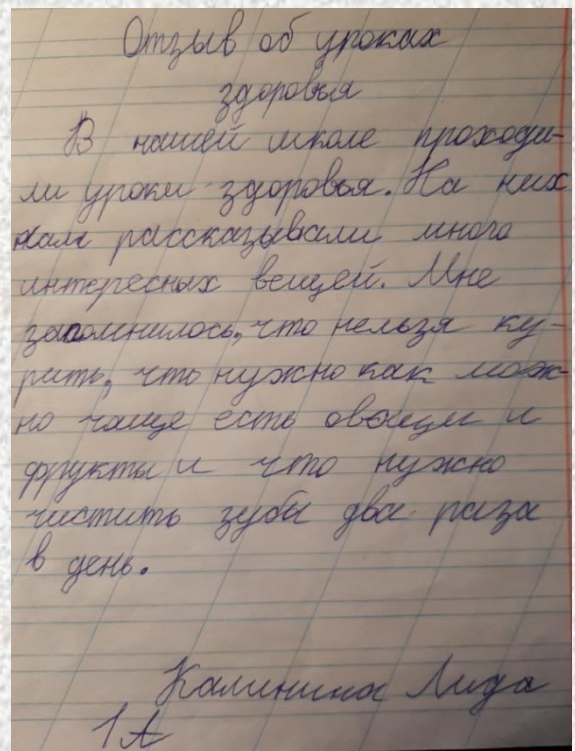 Отзыв об уроках
здоровья
В нашей школе проходи-
ли уроки здоровья. На них
нам рассказывали много
интересных вещей. Мне
запомнилось, что нельзя ку-
рить, что нужно как мож-
но чаще есть овощи и
фрукты и что нужно
чистить зубы два раза
в день.
Калинина Лида
1А